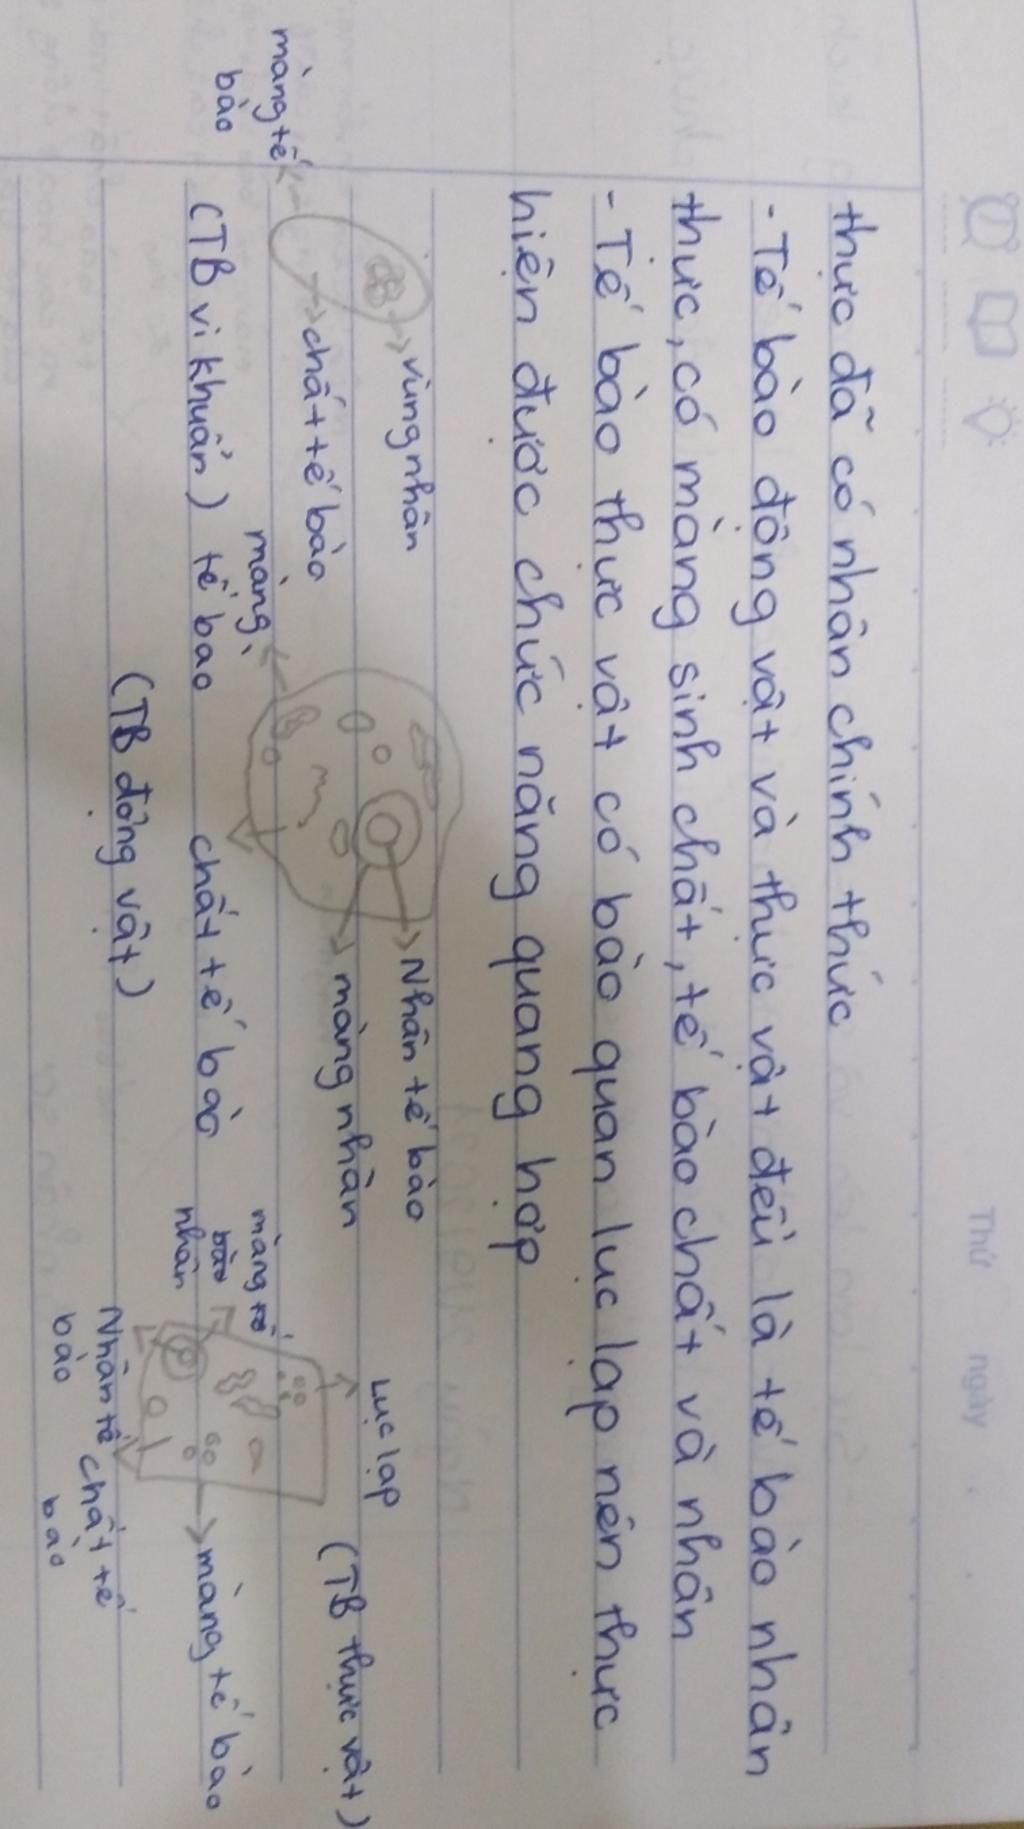 Thứ ngày
thực đã có nhân chính thức
- Tế bào động vật và thực vật đều là tế bào nhân
thực, có màng sinh chất, tế bào chất và nhân
- Tế bào thực vật có bào quan lục lạp nên thực
hiện được chức năng quang hợp
vùng nhân
chất tế bào
màng tế
bào
(TB vi khuẩn)
Nhân tế bào
màng nhân
màng
tế bao
chất tế bào
(TB động vật)
Lục lạp
(TB thực vật)
màng tế
bào
nhân
màng tế bào
Nhân tế
bào
chất tế
bào